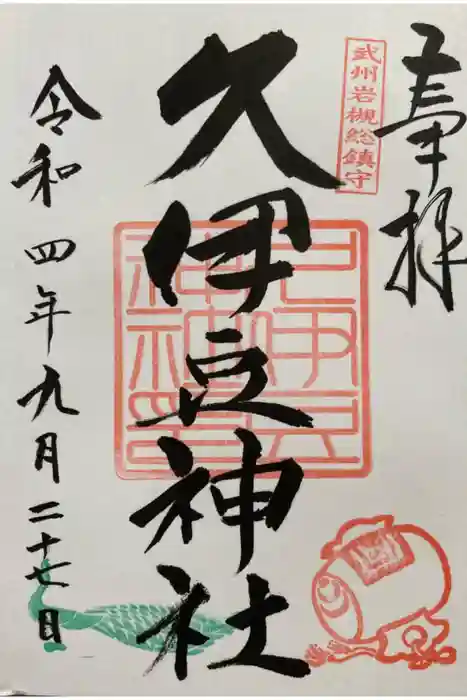 奉拝
武州岩槻総鎮守
久伊豆神社
令和四年九月二十七日